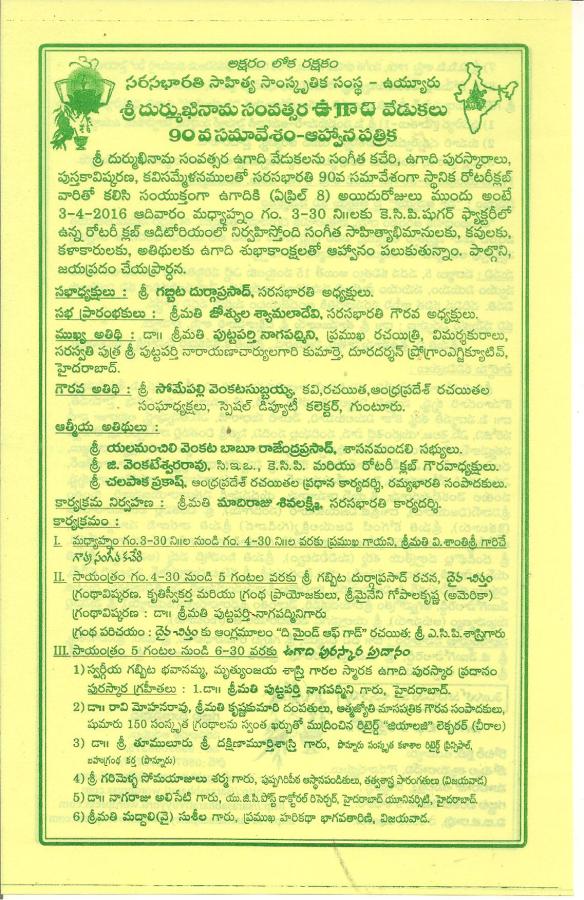 అక్షరం లోక రక్షకం
సరసభారతి సాహిత్య సాంస్కృతిక సంస్థ - ఉయ్యూరు
శ్రీ దుర్ముఖినామ సంవత్సర ఉగాది వేడుకలు
90 వ సమావేశం-ఆహ్వాన పత్రిక
శ్రీ దుర్ముఖినామ సంవత్సర ఉగాది వేడుకలను సంగీత కచేరి, ఉగాది పురస్కారాలు,
పుస్తకావిష్కరణ, కవిసమ్మేళనములతో సరసభారతి 90వ సమావేశంగా స్థానిక రోటరీక్లబ్
వారితో కలిసి సంయుక్తంగా ఉగాదికి (ఏప్రిల్ 8) అయిదురోజులు ముందు అంటే
3-4-2016 ఆదివారం మధ్యాహ్నం గం. 3-30 ని॥లకు కె.సి.పి.షుగర్ ఫ్యాక్టరీలో
ఉన్న రోటరీ క్లబ్ ఆడిటోరియంలో నిర్వహిస్తోంది సంగీత సాహిత్యాభిమానులకు, కవులకు,
కళాకారులకు, అతిథులకు ఉగాది శుభాకాంక్షలతో ఆహ్వానం పలుకుతున్నాం. పాల్గొని,
జయప్రదం చేయప్రార్ధన.
సభాధ్యక్షులు : శ్రీ గబ్బిట దుర్గాప్రసాద్, సరసభారతి అధ్యక్షులు.
సభ ప్రారంభకులు : శ్రీమతి జోశ్యుల శ్యామలాదేవి, సరసభారతి గౌరవ అధ్యక్షులు.
ముఖ్య అతిథి : డా॥ శ్రీమతి పుట్టపర్తి నాగపద్మిని, ప్రముఖ రచయిత్రి, విమర్శకురాలు,
సరస్వతి పుత్ర శ్రీ పుట్టపర్తి నారాయణాచార్యులగారి కుమార్తె, దూరదర్శన్ ప్రోగ్రాంఎగ్జిక్యూటివ్,
హైదరాబాద్.
గౌరవ అతిథి : శ్రీ సోమేపల్లి వెంకటసుబ్బయ్య, కవి,రచయిత,ఆంధ్రప్రదేశ్ రచయితల
సంఘాధ్యక్షులు, స్పెషల్ డిప్యూటీ కలెక్టర్, గుంటూరు.
ఆత్మీయ అతిథులు :
శ్రీ యలమంచిలి వెంకట బాబూ రాజేంద్రప్రసాద్, శాసనమండలి సభ్యులు.
శ్రీ జి. వెంకటేశ్వరరావు, సి.ఇ.ఒ., కె.సి.పి. మరియు రోటరీ క్లబ్ గౌరవాధ్యక్షులు.
శ్రీ చలపాక ప్రకాష్, ఆంధ్రప్రదేశ్ రచయితల ప్రధాన కార్యదర్శి, రమ్యభారతి సంపాదకులు.
కార్యక్రమ నిర్వహణ : శ్రీమతి మాదిరాజు శివలక్ష్మి, సరసభారతి కార్యదర్శి.
కార్యక్రమం :
I. మధ్యాహ్నం గం.3-30 ని॥ల నుండి గం. 4-30 ని॥ల వరకు ప్రముఖ గాయని, శ్రీమతి వి.శాంతిశ్రీ గారిచే
గాత్ర సంగీత కచేరి
II. సాయంత్రం గం.4-30 నుండి 5 గంటల వరకు శ్రీ గబ్బిట దుర్గాప్రసాద్ రచన, దైవ చిత్తం
గ్రంథావిష్కరణ. కృతిస్వీకర్త మరియు గ్రంథ ప్రాయోజకులు, శ్రీమైనేని గోపాలకృష్ణ (అమెరికా)
గ్రంథావిష్కరణ : డా॥ శ్రీమతి పుట్టపర్తి నాగపద్మినిగారు
గ్రంథ పరిచయం : దైవ చిత్తం కు ఆంగ్లమూలం "ది మైండ్ ఆఫ్ గాడ్" రచయిత: శ్రీ ఎ.సి.పి.శాస్త్రిగారు
III. సాయంత్రం 5 గంటల నుండి 6-30 వరకు ఉగాది పురస్కార ప్రదానం
1) స్వర్గీయ గబ్బిట భవానమ్మ, మృత్యుంజయ శాస్త్రి గారల స్మారక ఉగాది పురస్కార ప్రదానం
పురస్కార గ్రహీతలు : 1.డా॥ శ్రీమతి పుట్టపర్తి నాగపద్మిని గారు, హైదరాబాద్.
2) డా॥ రావి మోహనరావు, శ్రీమతి కృష్ణకుమారి దంపతులు, ఆత్మజ్యోతి మాసపత్రిక గౌరవ సంపాదకులు,
షుమారు 150 సంస్కృత గ్రంథాలను స్వంత ఖర్చుతో ముద్రించిన రిటైర్డ్ "జియాలజి" లెక్చరర్ (చీరాల)
3) డా॥ శ్రీ తూములూరు శ్రీ దక్షిణామూర్తిశాస్త్రి గారు, పొన్నూరు సంస్కృత కళాశాల రిటైర్డ్ ప్రిన్సిపాల్,
బహుగ్రంథ కర్త (పొన్నూరు)
4) శ్రీ గరిమెళ్ళ సోమయాజులు శర్మ గారు, పుష్పగిరిపీఠ ఆస్థానపండితులు, తత్వశాస్త్ర పారంగతులు (విజయవాడ)
5) డా॥ నాగరాజు అలిసేటి గారు, యు.జి.సి.పోస్ట్ డాక్టోరల్ రిసెర్చర్, హైదరాబాద్ యూనివర్సిటి, హైదరాబాద్.
6) శ్రీమతి మద్దాలి(వై) సుశీల గారు, ప్రముఖ హరికథా భాగవతారిణి, విజయవాడ.